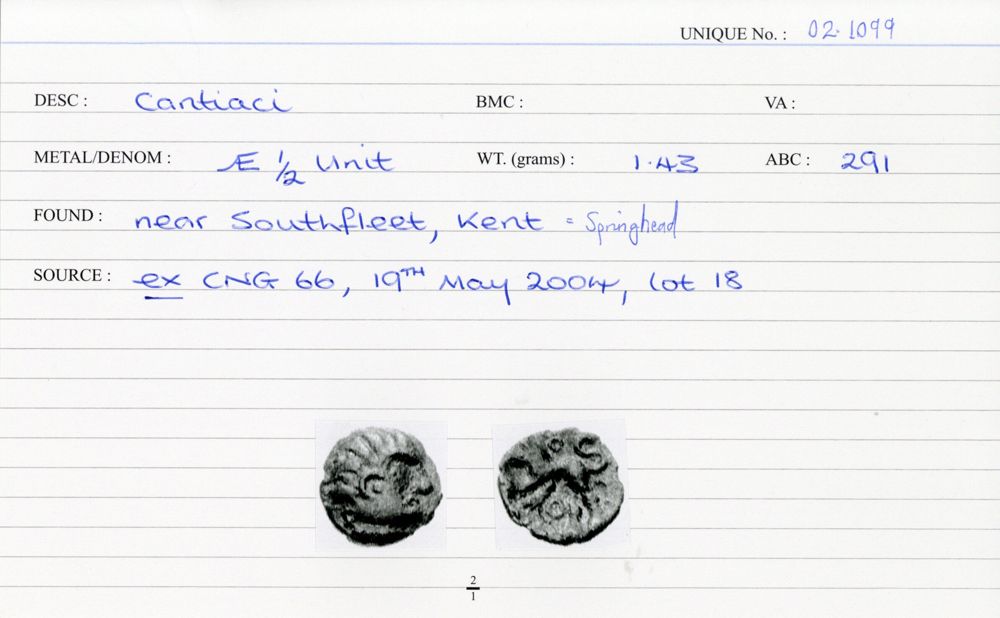 UNIQUE No. : 02.1099
DESC : Cantiaci BMC : VA :
METAL/DENOM : Æ 1/2 Unit WT. (grams) : 1.43 ABC : 291
FOUND : near Southfleet, Kent = Springhead
SOURCE : ex CNG 66, 19TH May 2004, lot 18
2
1